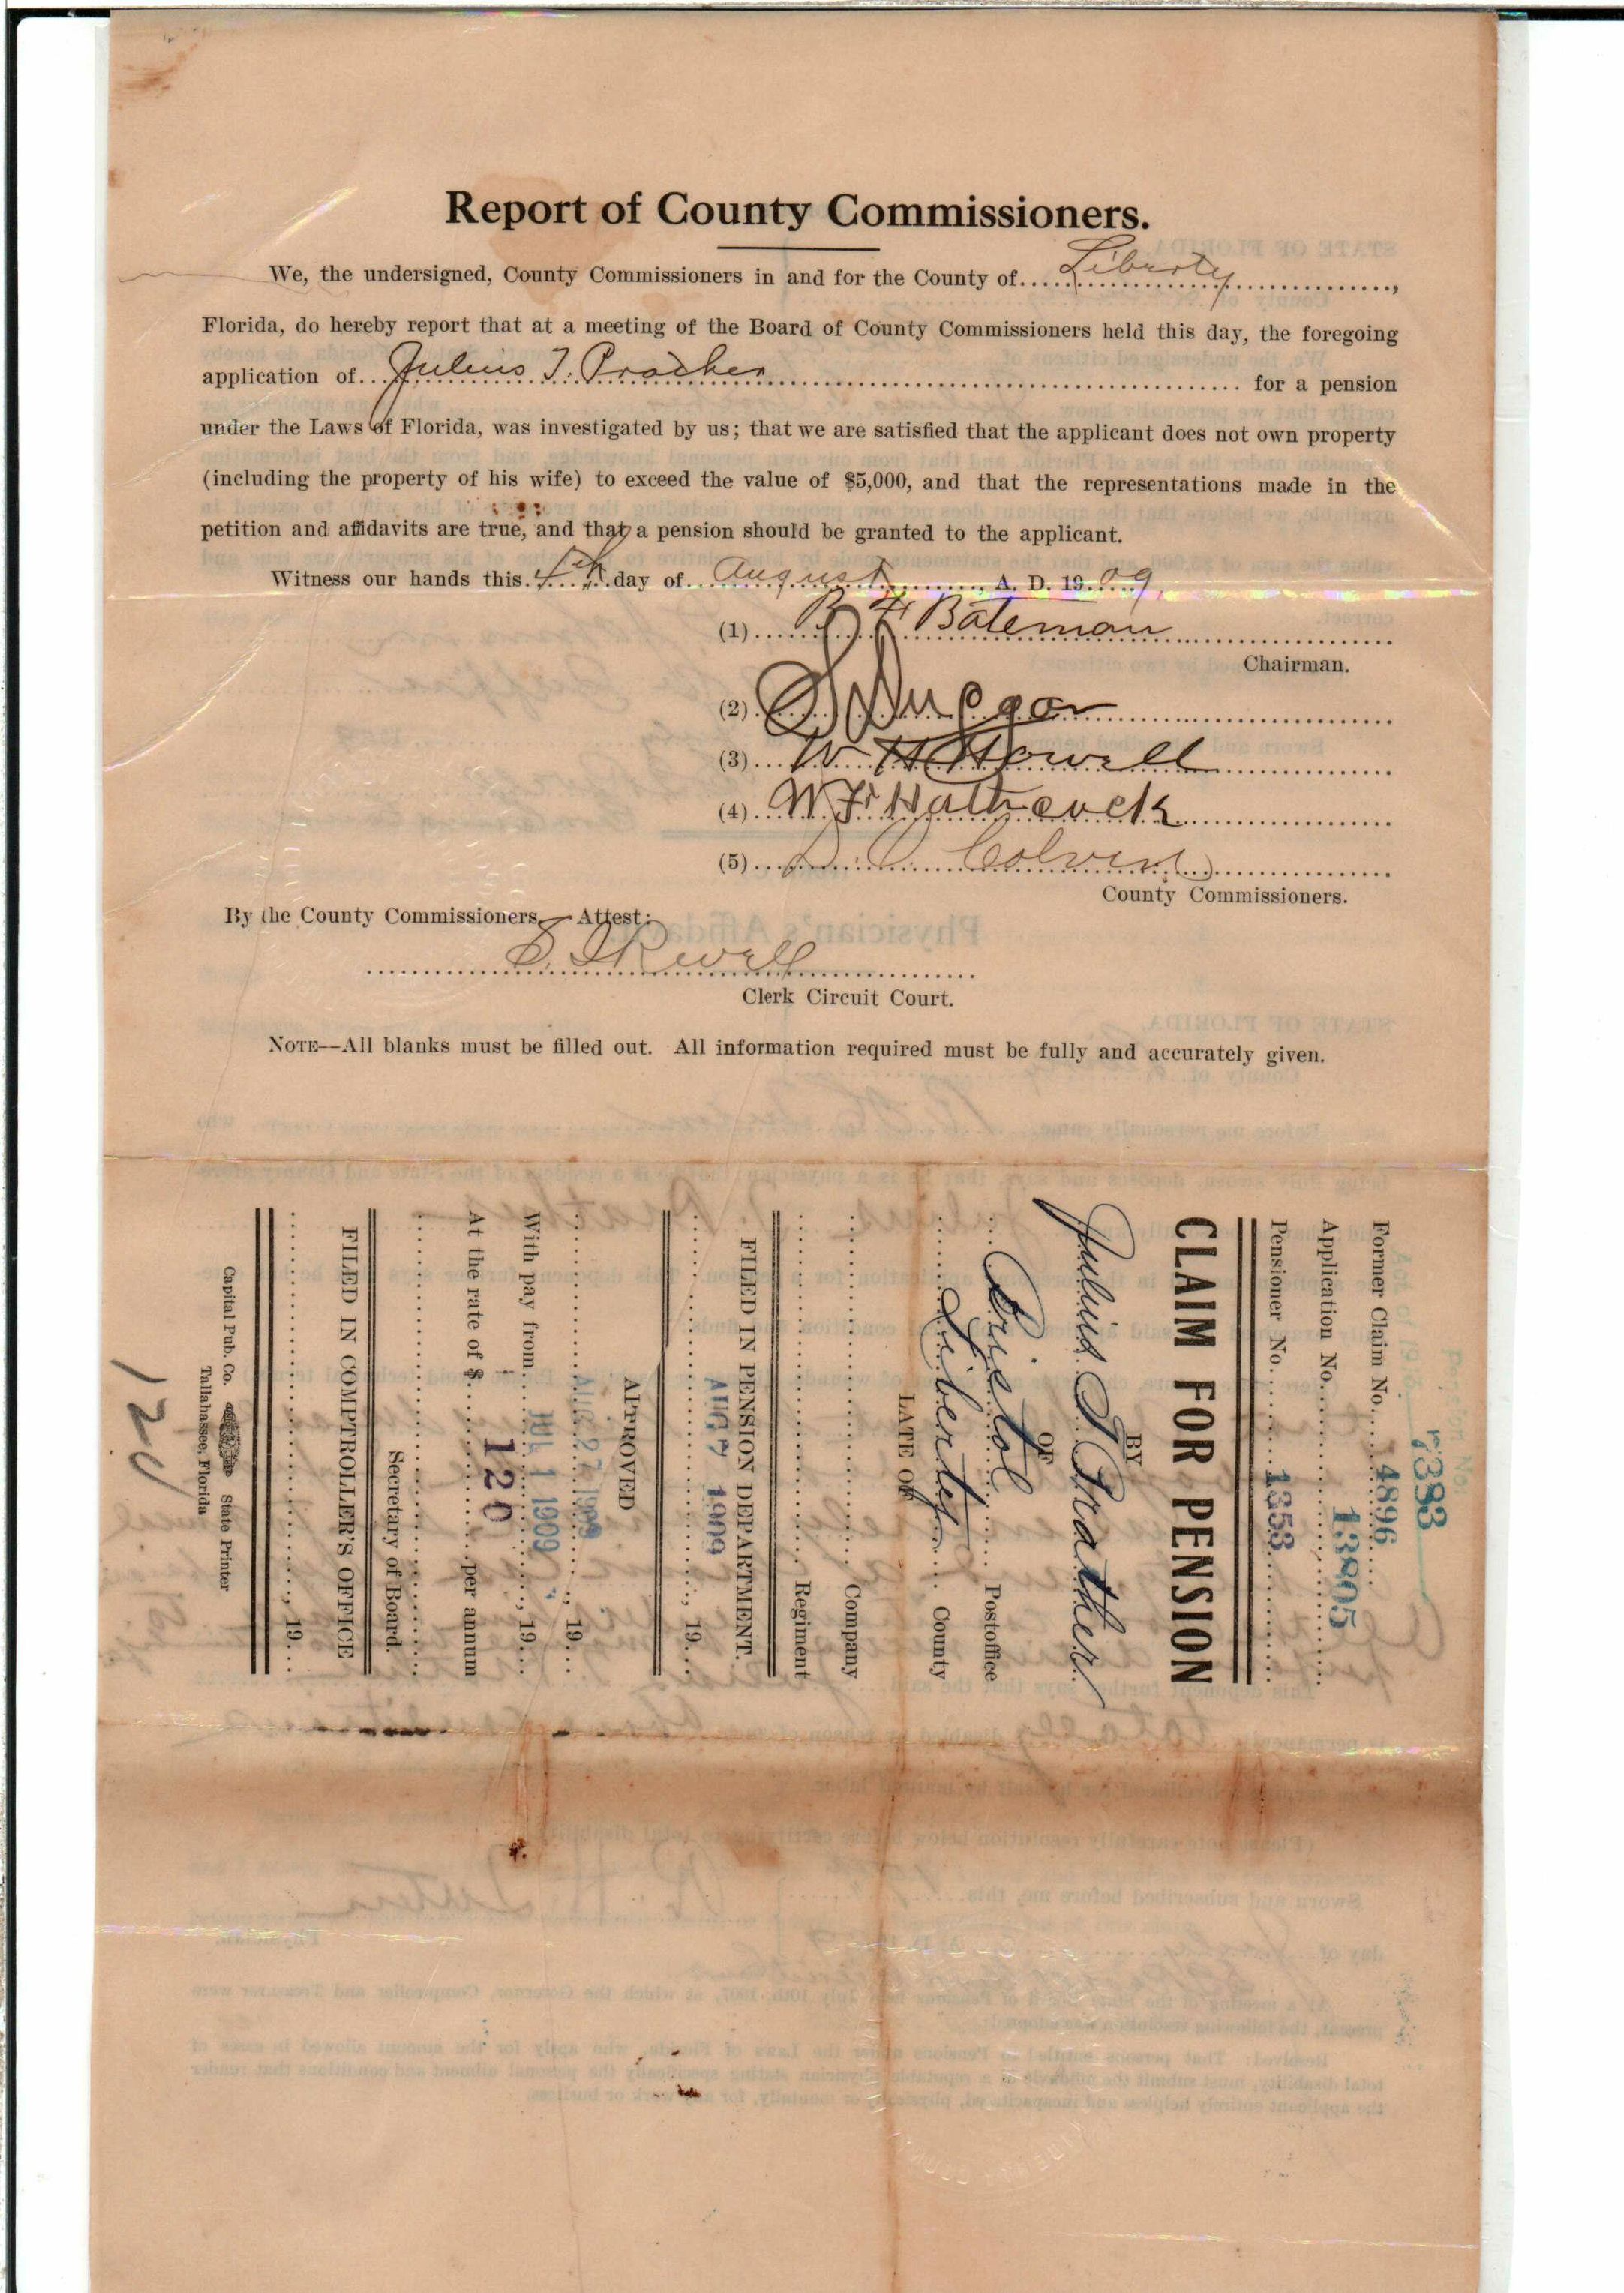 Report of County Commissioners.
We, the undersigned, County Commissioners in and for the County of Liberty,
Florida, do hereby report that at a meeting of the Board of County Commissioners held this day, the foregoing
application of Julius T. Prather for a pension
under the Laws of Florida, was investigated by us; that we are satisfied that the applicant does not own property
(including the property of his wife) to exceed the value of $5,000, and that the representations made in the
petition and affidavits are true, and that a pension should be granted to the applicant.
Witness our hands this 4th day of August, A. D. 1909
(1) B F Bateman
Chairman.
(2) Duggar
(3) W H Howell
(4) W F Hathcock
(5) D C Colvin
County Commissioners.
By the County Commissioners, Attest:
Clerk Circuit Court.
NOTE--All blanks must be filled out. All information required must be fully and accurately given.
7383
Former Claim No. 4896
Application No. 13805
Pensioner No. 1353
CLAIM FOR PENSION
BY
Julius T Prather
OF
Bristol Postoffice
Liberty County
LATE OF
Company
Regiment
FILED IN PENSION DEPARTMENT.
AUG 7 1909, 19
APPROVED
AUG 27 1909, 19
With pay from JUL 1 1909, 19
At the rate of $ 120 per annum
Secretary of Board.
FILED IN COMPTROLLER'S OFFICE
, 19
Capital Pub. Co. State Printer
Tallahassee, Florida
120